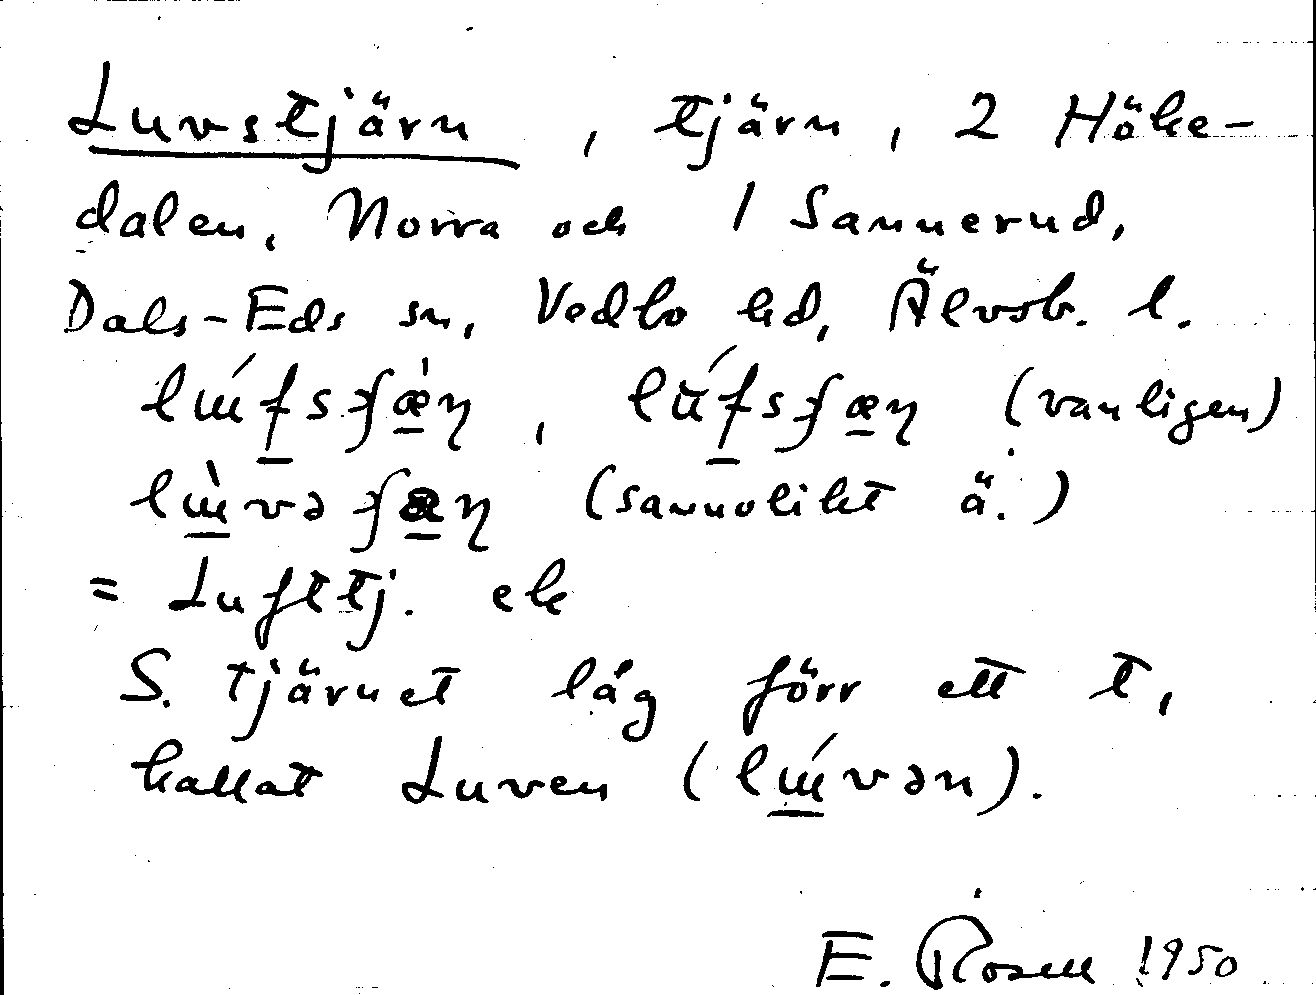 Luvstjärn, tjärn, 2 Höke-
dalen, Norra och 1 Sannerud,
Dals-Eds sn, Vedbo hd, Älvsb. l.
(vanligen)
(sannolikt ä.)
= Lufttj. ek
S. tjärnet låg förr ett t,
kallat Luven
E. Rosell 1950